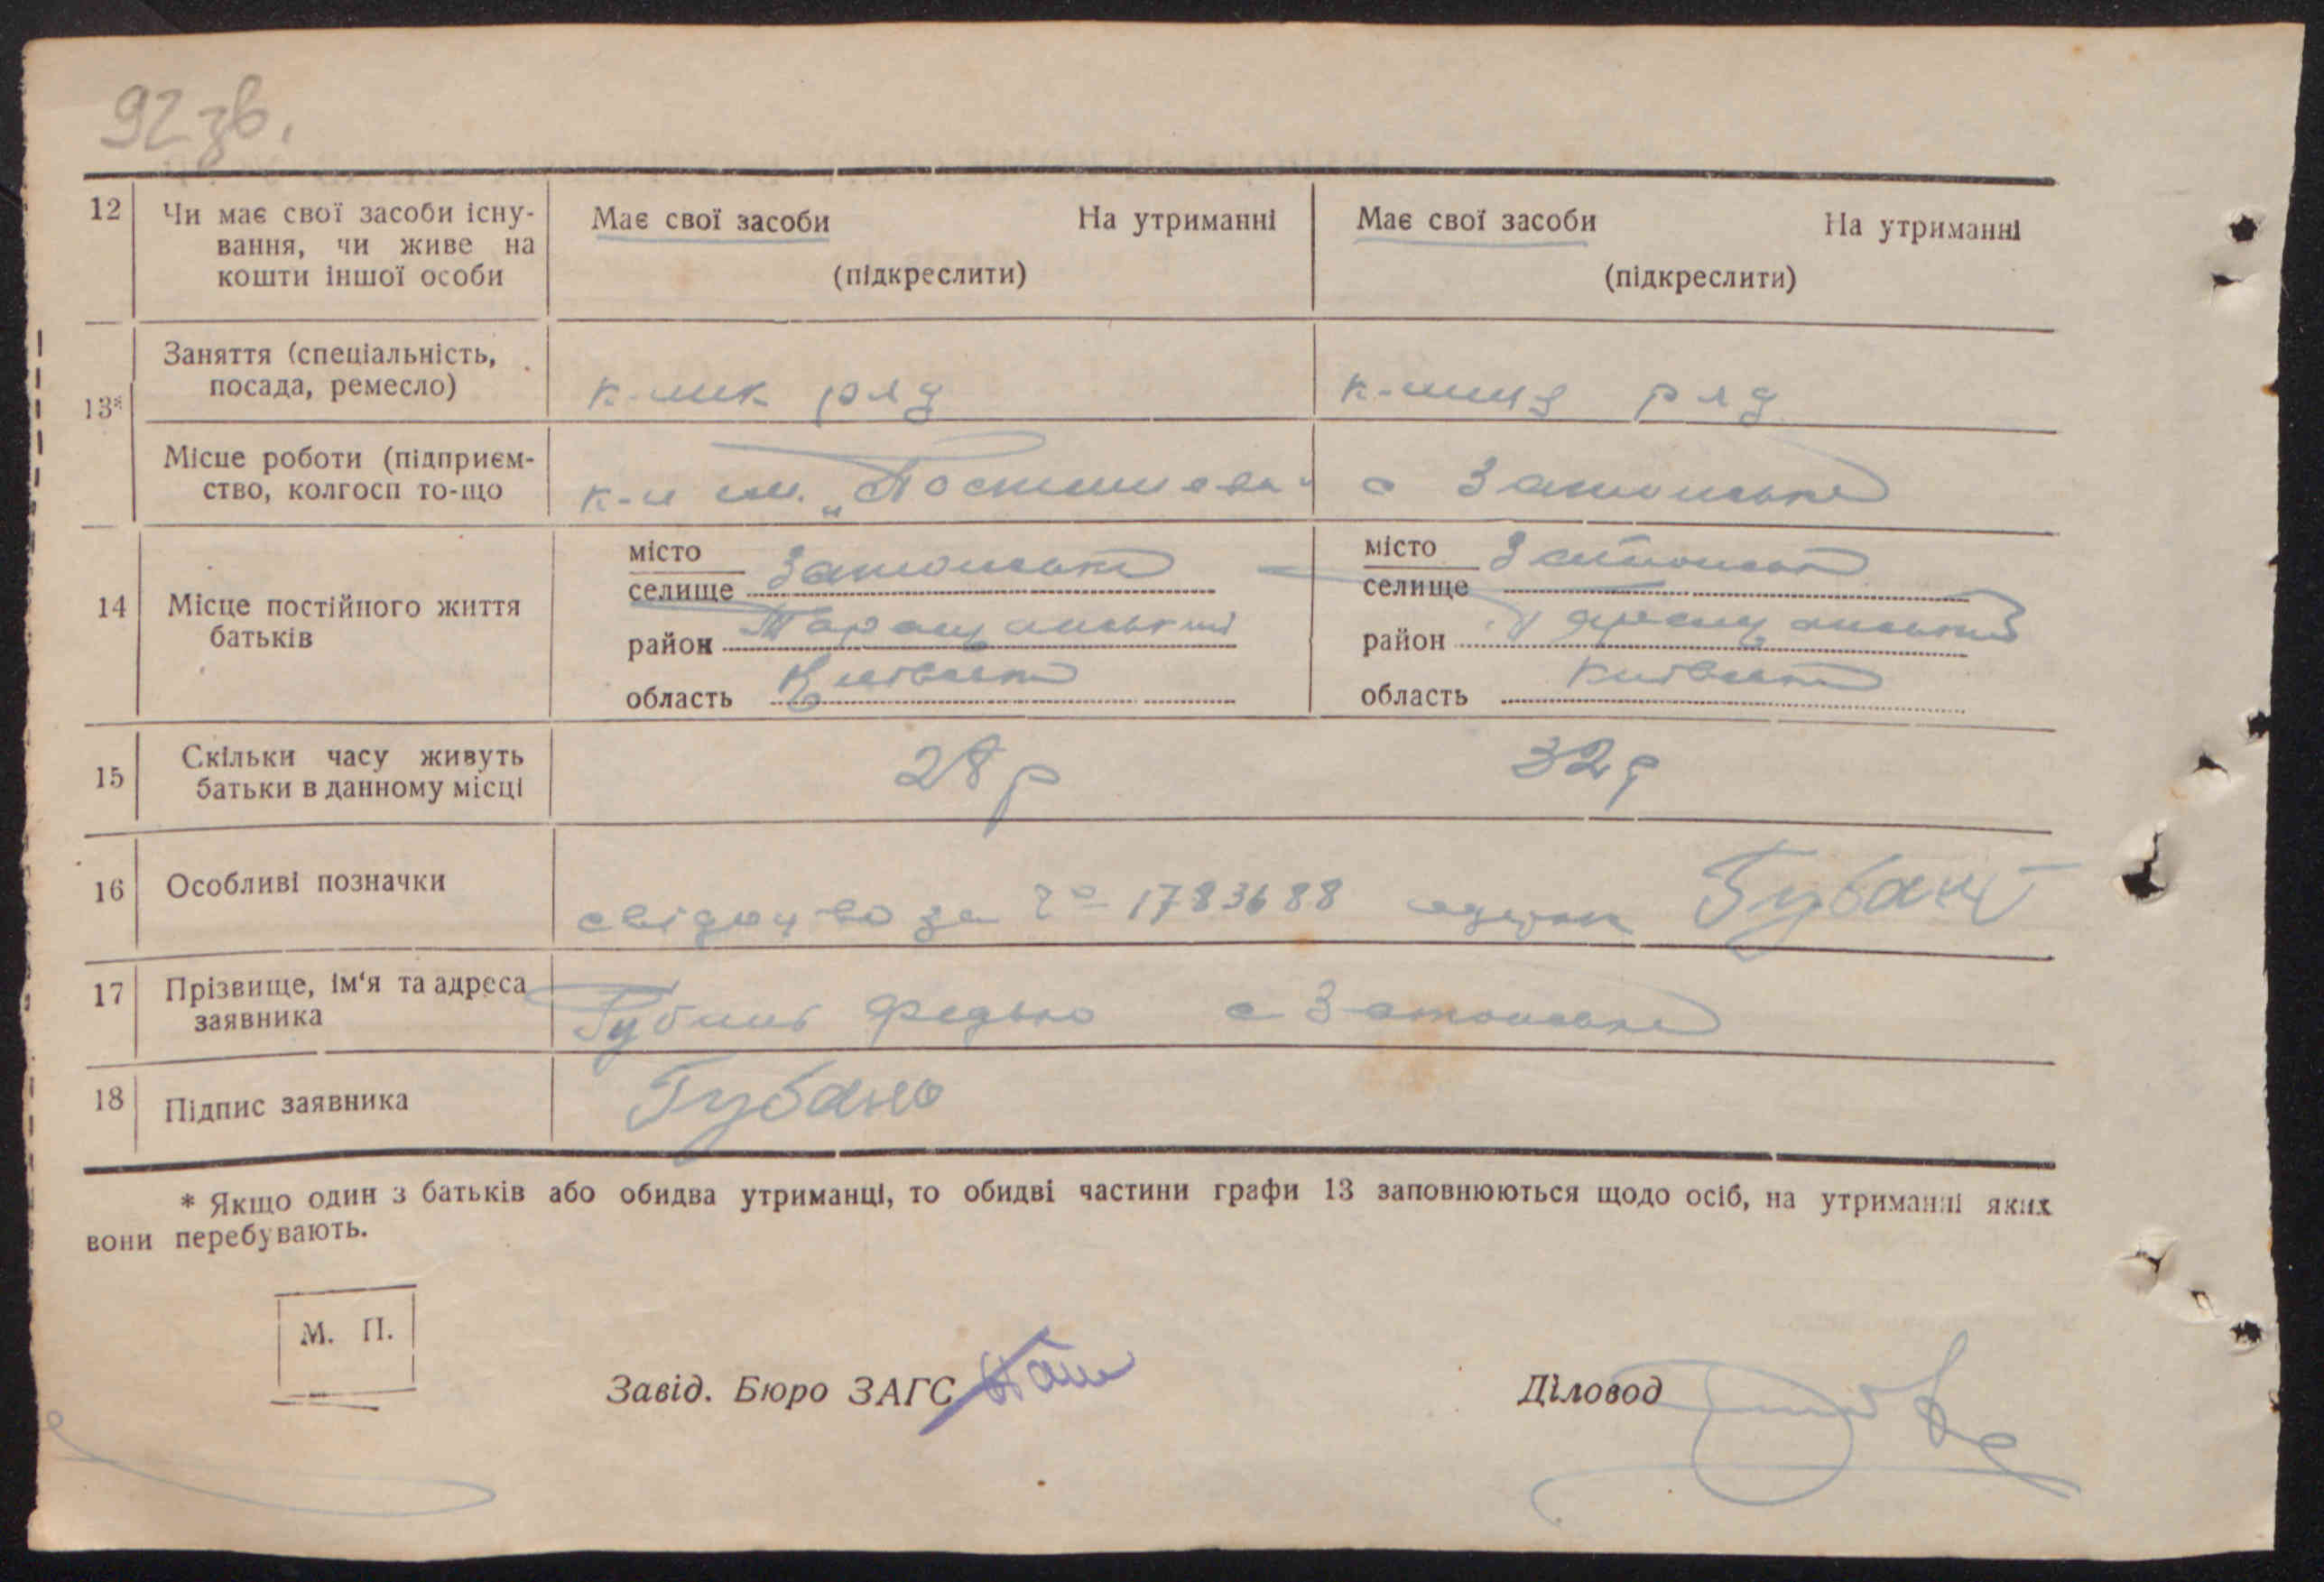 92 зв.
12 Чи має свої засоби існу- Має свої засоби На утриманні Має свої засоби На утриманні
вання, чи живе на
кошти іншої особи (підкреслити) (підкреслити)
Заняття (спеціальність,
посада, ремесло) к-ник ряд к-ниця ряд
13*
Місце роботи (підприєм-
ство, колгосп то-що к-п ім. „Постишева" с Затонське
місто Затонське місто Затонське
селище селище
14 Місце постійного життя
батьків район Таращанський район Таращанський
область Київська область Київська
15 Скільки часу живуть 28 р 32 р
батьки в данному місці
16 Особливі позначки свідоцтво за № 1783688 одержав Губань
17 Прізвище, ім'я та адреса
заявника Губань Федько с Затонське
18 Підпис заявника Губань
* Якщо один з батьків або обидва утриманці, то обидві частини графи 13 заповнюються щодо осіб, на утриманні яких
вони перебувають.
М. П.
Завід. Бюро ЗАГС Діловод